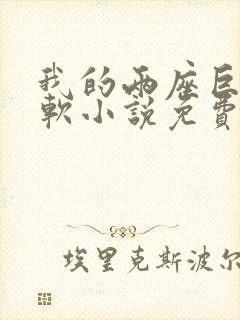 我的兩座巨
軟小説免費
埃里克斯波尔